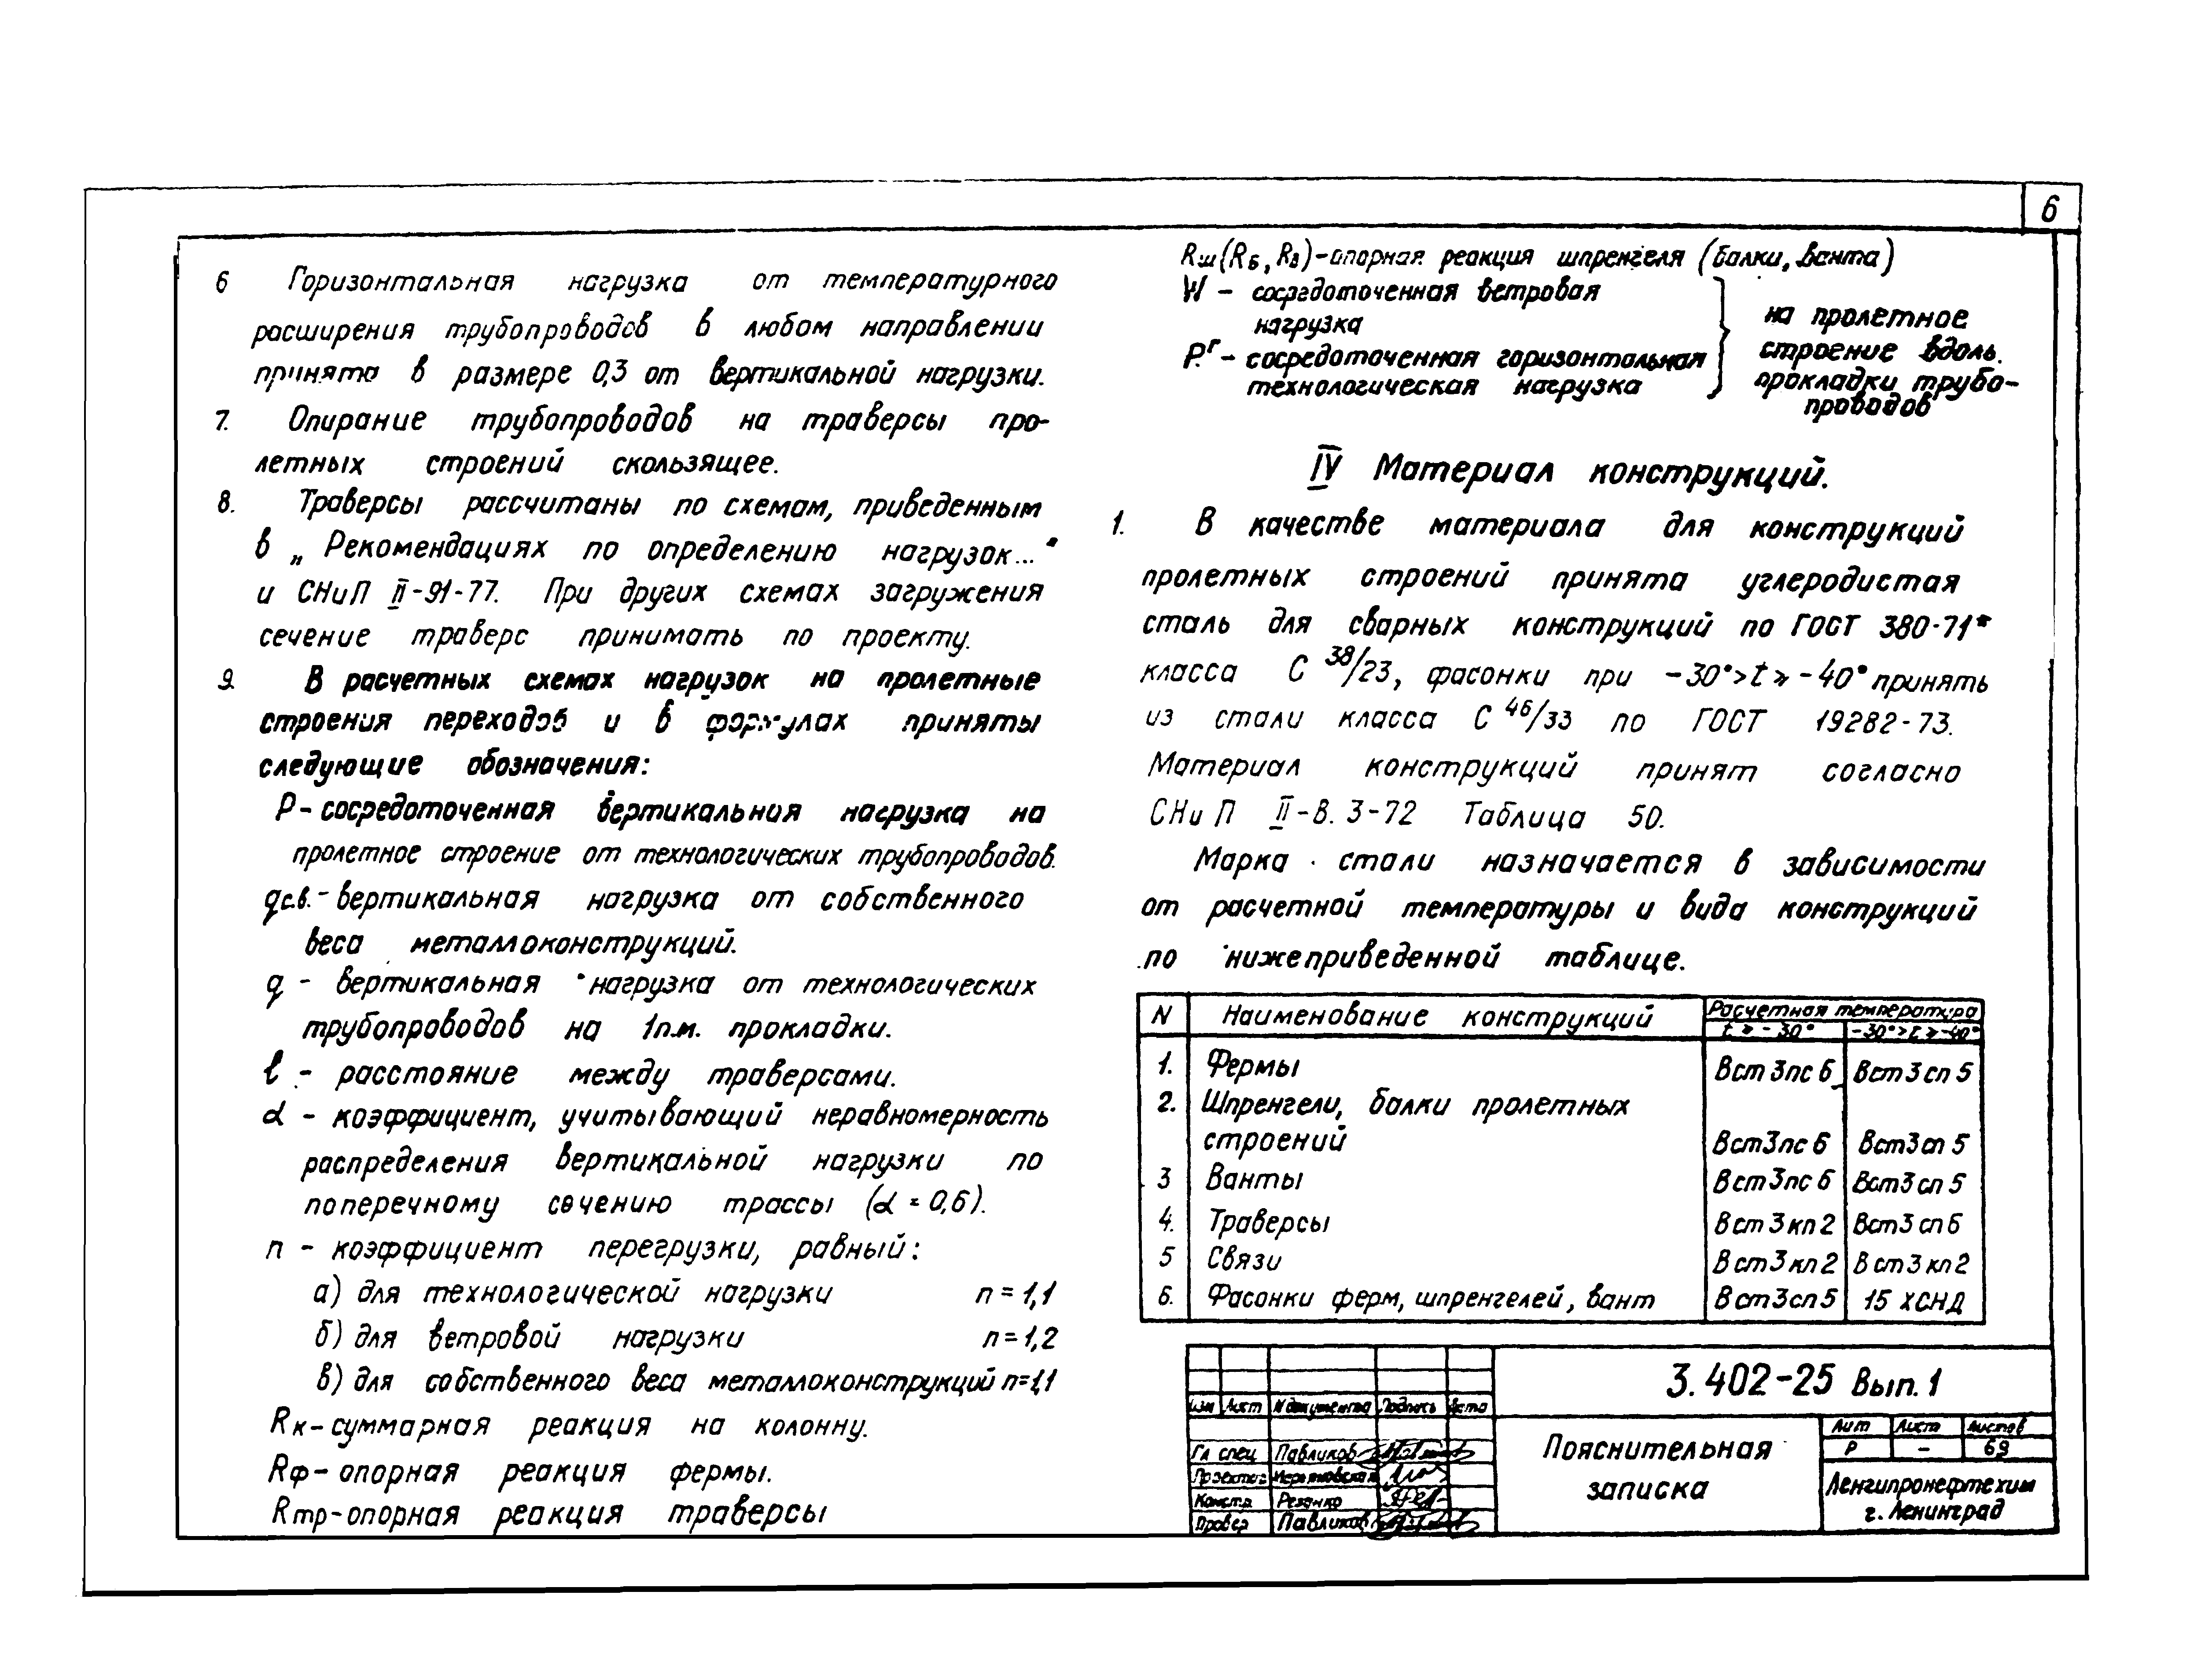 6
6 Горизонтальная нагрузка от температурного
расширения трубопроводов в любом направлении
принята в размере 0,3 от вертикальной нагрузки.
7. Опирание трубопроводов на траверсы про-
летных строений скользящее.
8. Траверсы рассчитаны по схемам, приведенным
в „Рекомендациях по определению нагрузок..."
и СНиП II-91-77. При других схемах загружения
сечение траверс принимать по проекту.
9. В расчетных схемах нагрузок на пролетные
строения переходов и в формулах приняты
следующие обозначения:
P - сосредоточенная вертикальная нагрузка на
пролетное строение от технологических трубопроводов.
qс.в. - вертикальная нагрузка от собственного
веса металлоконструкций.
q - вертикальная нагрузка от технологических
трубопроводов на 1п.м. прокладки.
ℓ - расстояние между траверсами.
α - коэффициент, учитывающий неравномерность
распределения вертикальной нагрузки по
поперечному сечению трассы (α = 0,6).
n - коэффициент перегрузки, равный:
а) для технологической нагрузки n = 1,1
б) для ветровой нагрузки n = 1,2
в) для собственного веса металлоконструкций n=1,1
Rк - суммарная реакция на колонну.
Rф - опорная реакция фермы.
Rтр - опорная реакция траверсы
Rш (Rб, Rв) - опорная реакция шпренгеля (балки, ванта)
W - сосредоточенная ветровая
нагрузка
P.г - сосредоточенная горизонтальная
технологическая нагрузка
на пролетное
строение вдоль.
прокладки трубо-
проводов
IV Материал конструкций.
1. В качестве материала для конструкций
пролетных строений принята углеродистая
сталь для сварных конструкций по ГОСТ 380-71*
класса С 38/23, фасонки при -30°>t⩾-40° принять
из стали класса С 46/33 по ГОСТ 19282-73.
Материал конструкций принят согласно
СНиП II-В.3-72 Таблица 50.
Марка стали назначается в зависимости
от расчетной температуры и вида конструкций
по нижеприведенной таблице.
N Наименование конструкций Расчетная температура
t⩾-30° -30°>t⩾-40°
1. Фермы Вст 3пс 6 Вст 3 сп 5
2. Шпренгели, балки пролетных
строений Вст3пс 6 Вст3сп 5
3 Ванты Вст 3пс 6 Вст3 сп 5
4. Траверсы Вст 3 кп 2 Вст3 сп 6
5 Связи Вст 3 кп 2 Вст 3 кп 2
6. Фасонки ферм, шпренгелей, вант Вст3сп 5 15 ХСНД
3.402-25 Вып. 1
Изм Лист N документа Подпись Дата
Гл спец Павликов
Констр. Резанко
Провер Павликов
Пояснительная
записка
Лит Лист Листов
Р - 69
Ленгипронефтехим
г. Ленинград